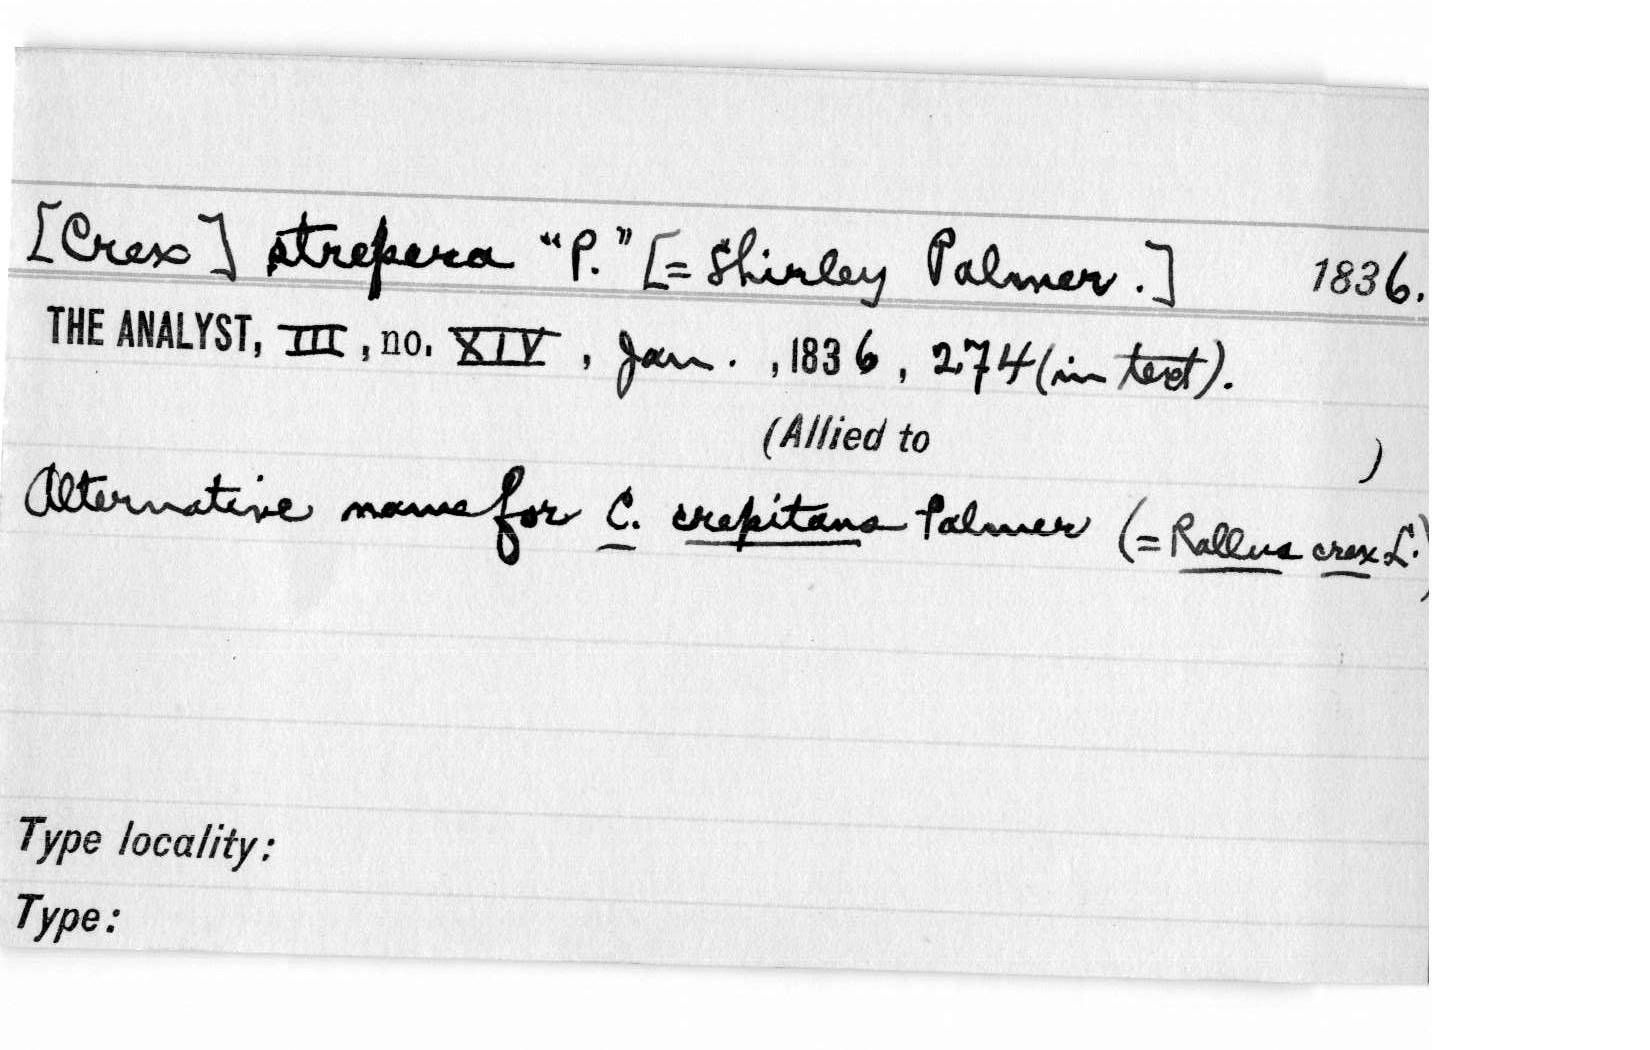 [Crex] strepera "P." [= Shirley Palmer.] 1836.
THE ANALYST, III, no. XIV, Jan., 1836, 274 (in text).
(Allied to )
Alternative name for C. crepitans Palmer (= Rallus crex L.)
Type locality:
Type: